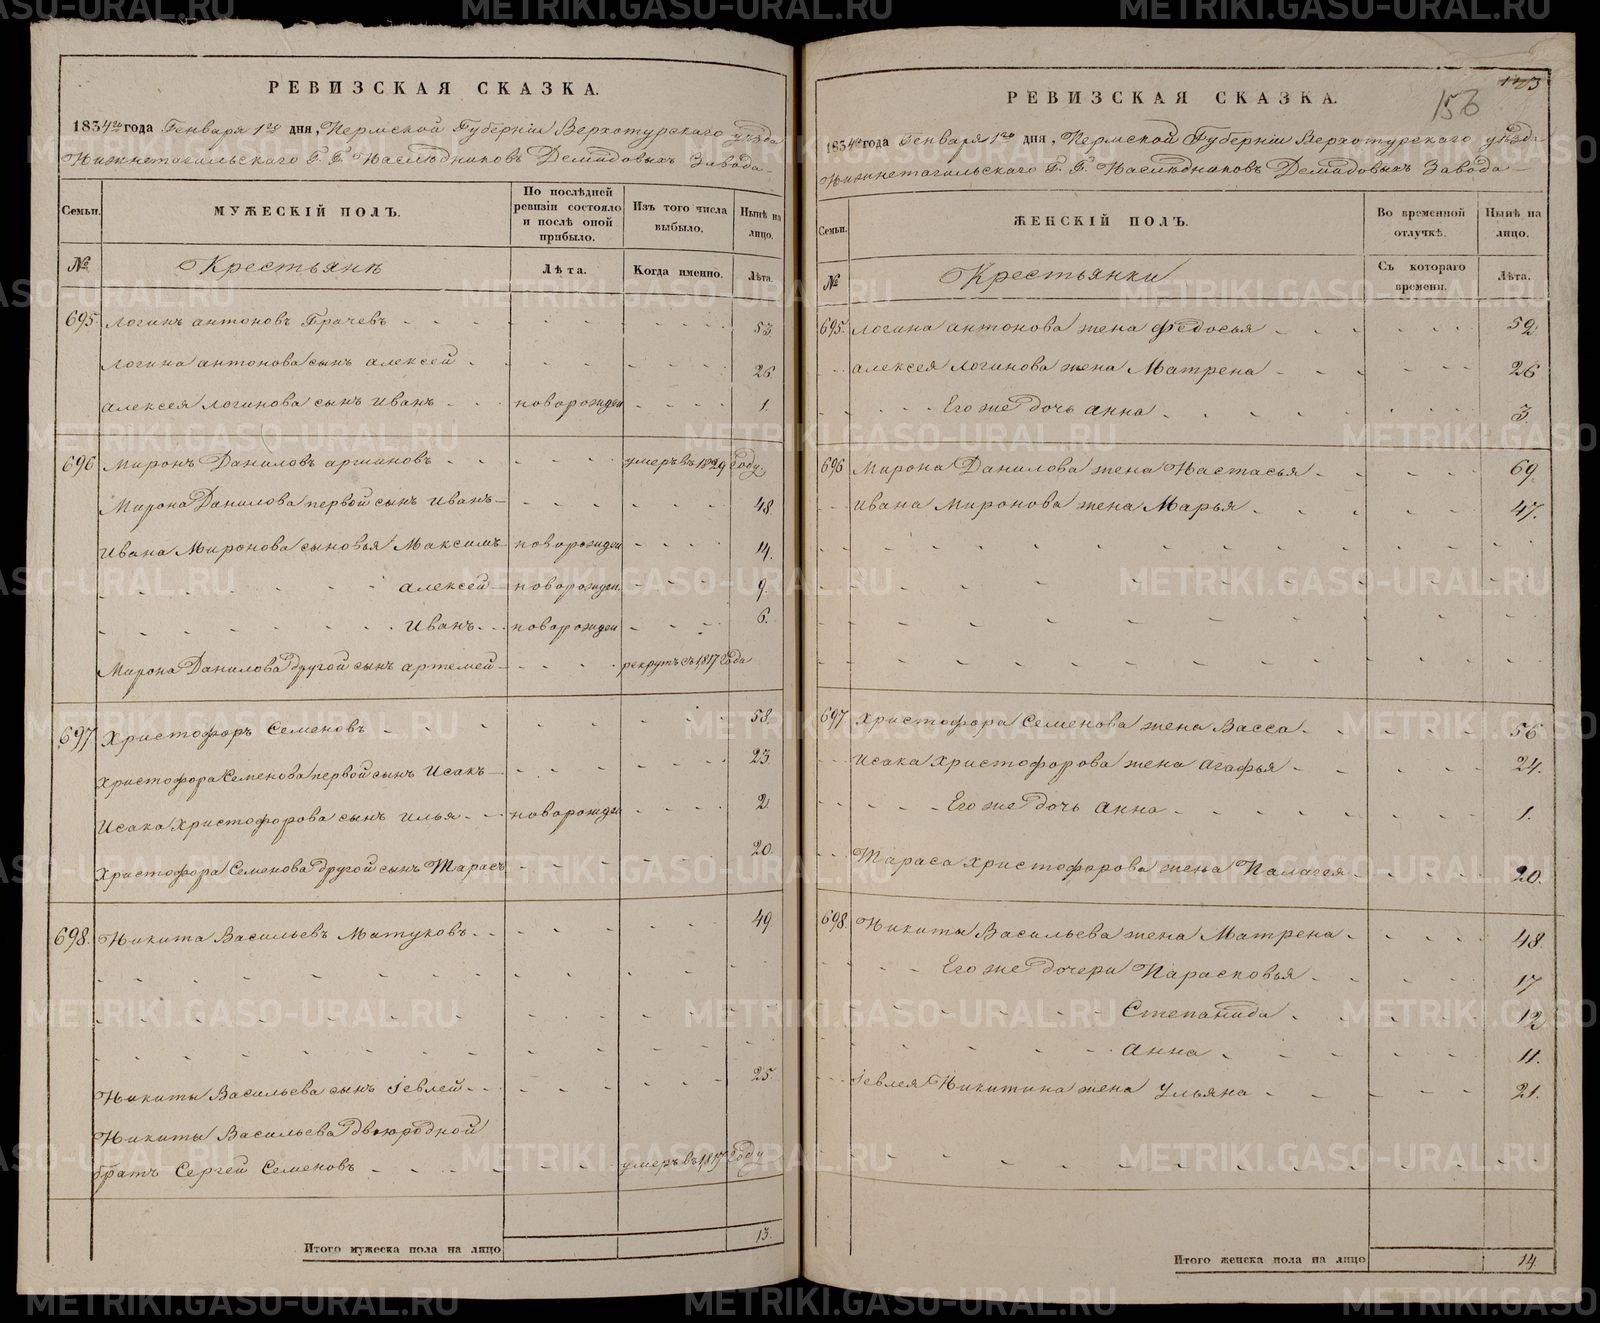 РЕВИЗСКАЯ СКАЗКА.
1834го года Генваря 1го дня, Пермской Губернiи Верхотурского уѣзда
Нижнетагильского Г. Г. Наслѣдниковъ Демидовыхъ Завода
Семьи.
МУЖЕСКIЙ ПОЛЪ.
По послѣдней ревизiи состояло и послѣ оной прибыло.
Изъ того числа выбыло.
Нынѣ на лицо.
№
Крестьянѣ
Лѣта.
Когда именно.
Лѣта.
695. Логинъ Антоновъ 53.
Логина Антонова сынъ Алексей 26.
Алексея Логинова сынъ Иванъ новорожден 1.
696 Миронъ Даниловъ умеръ въ 1829 Году
Мирона Данилова первой сынъ Иванъ 48.
Ивана Миронова сыновья Максимъ новорожден 14.
Алексей новорожден. 9.
Иванъ новорожден 6.
Мирона Данилова другой сынъ Артемей рекрутъ съ 1817 Года
697 Христофоръ Семеновъ 58.
Христофора Семенова первой сынъ Исакъ 23.
Исака Христофорова сынъ Илья новорожден 2
Христофора Семенова другой сынъ Тарасъ 20.
698. Никита Васильевъ Матуковъ 49.
Никиты Васильева сынъ Iевлей 25.
Никиты Васильева двоюродной
братъ Сергей Семеновъ умеръ въ 1817 Году
Итого мужеска пола на лицо 13.
123
156
РЕВИЗСКАЯ СКАЗКА.
1834го года Генваря 1го дня, Пермской Губернiи Верхотурского уѣзда
Нижнетагильского Г. Г. Наслѣдниковъ Демидовыхъ Завода
Семьи.
ЖЕНСКIЙ ПОЛЪ.
Во временной отлучкѣ.
Нынѣ на лицо.
№
Крестьянки
Съ котораго времени.
Лѣта.
695. Логина Антонова жена Федосья 52.
Алексея Логинова жена Матрена 26
Его же дочь Анна 3.
696 Мирона Данилова жена Настасья 69.
Ивана Миронова жена Марья 47.
697 Христофора Семенова жена Васса 56
Исака Христофорова жена Агафья 24.
Его же дочь Анна 1.
Тараса Христофорова жена Палагея 20.
698. Никиты Васильева жена Матрена 48.
Его же дочери Парасковья 17
Степанида 12
Анна 11.
Iевлея Никитина жена Ульяна 21.
Итого женска пола на лицо 14.
METRIKI.GASO-URAL.RU